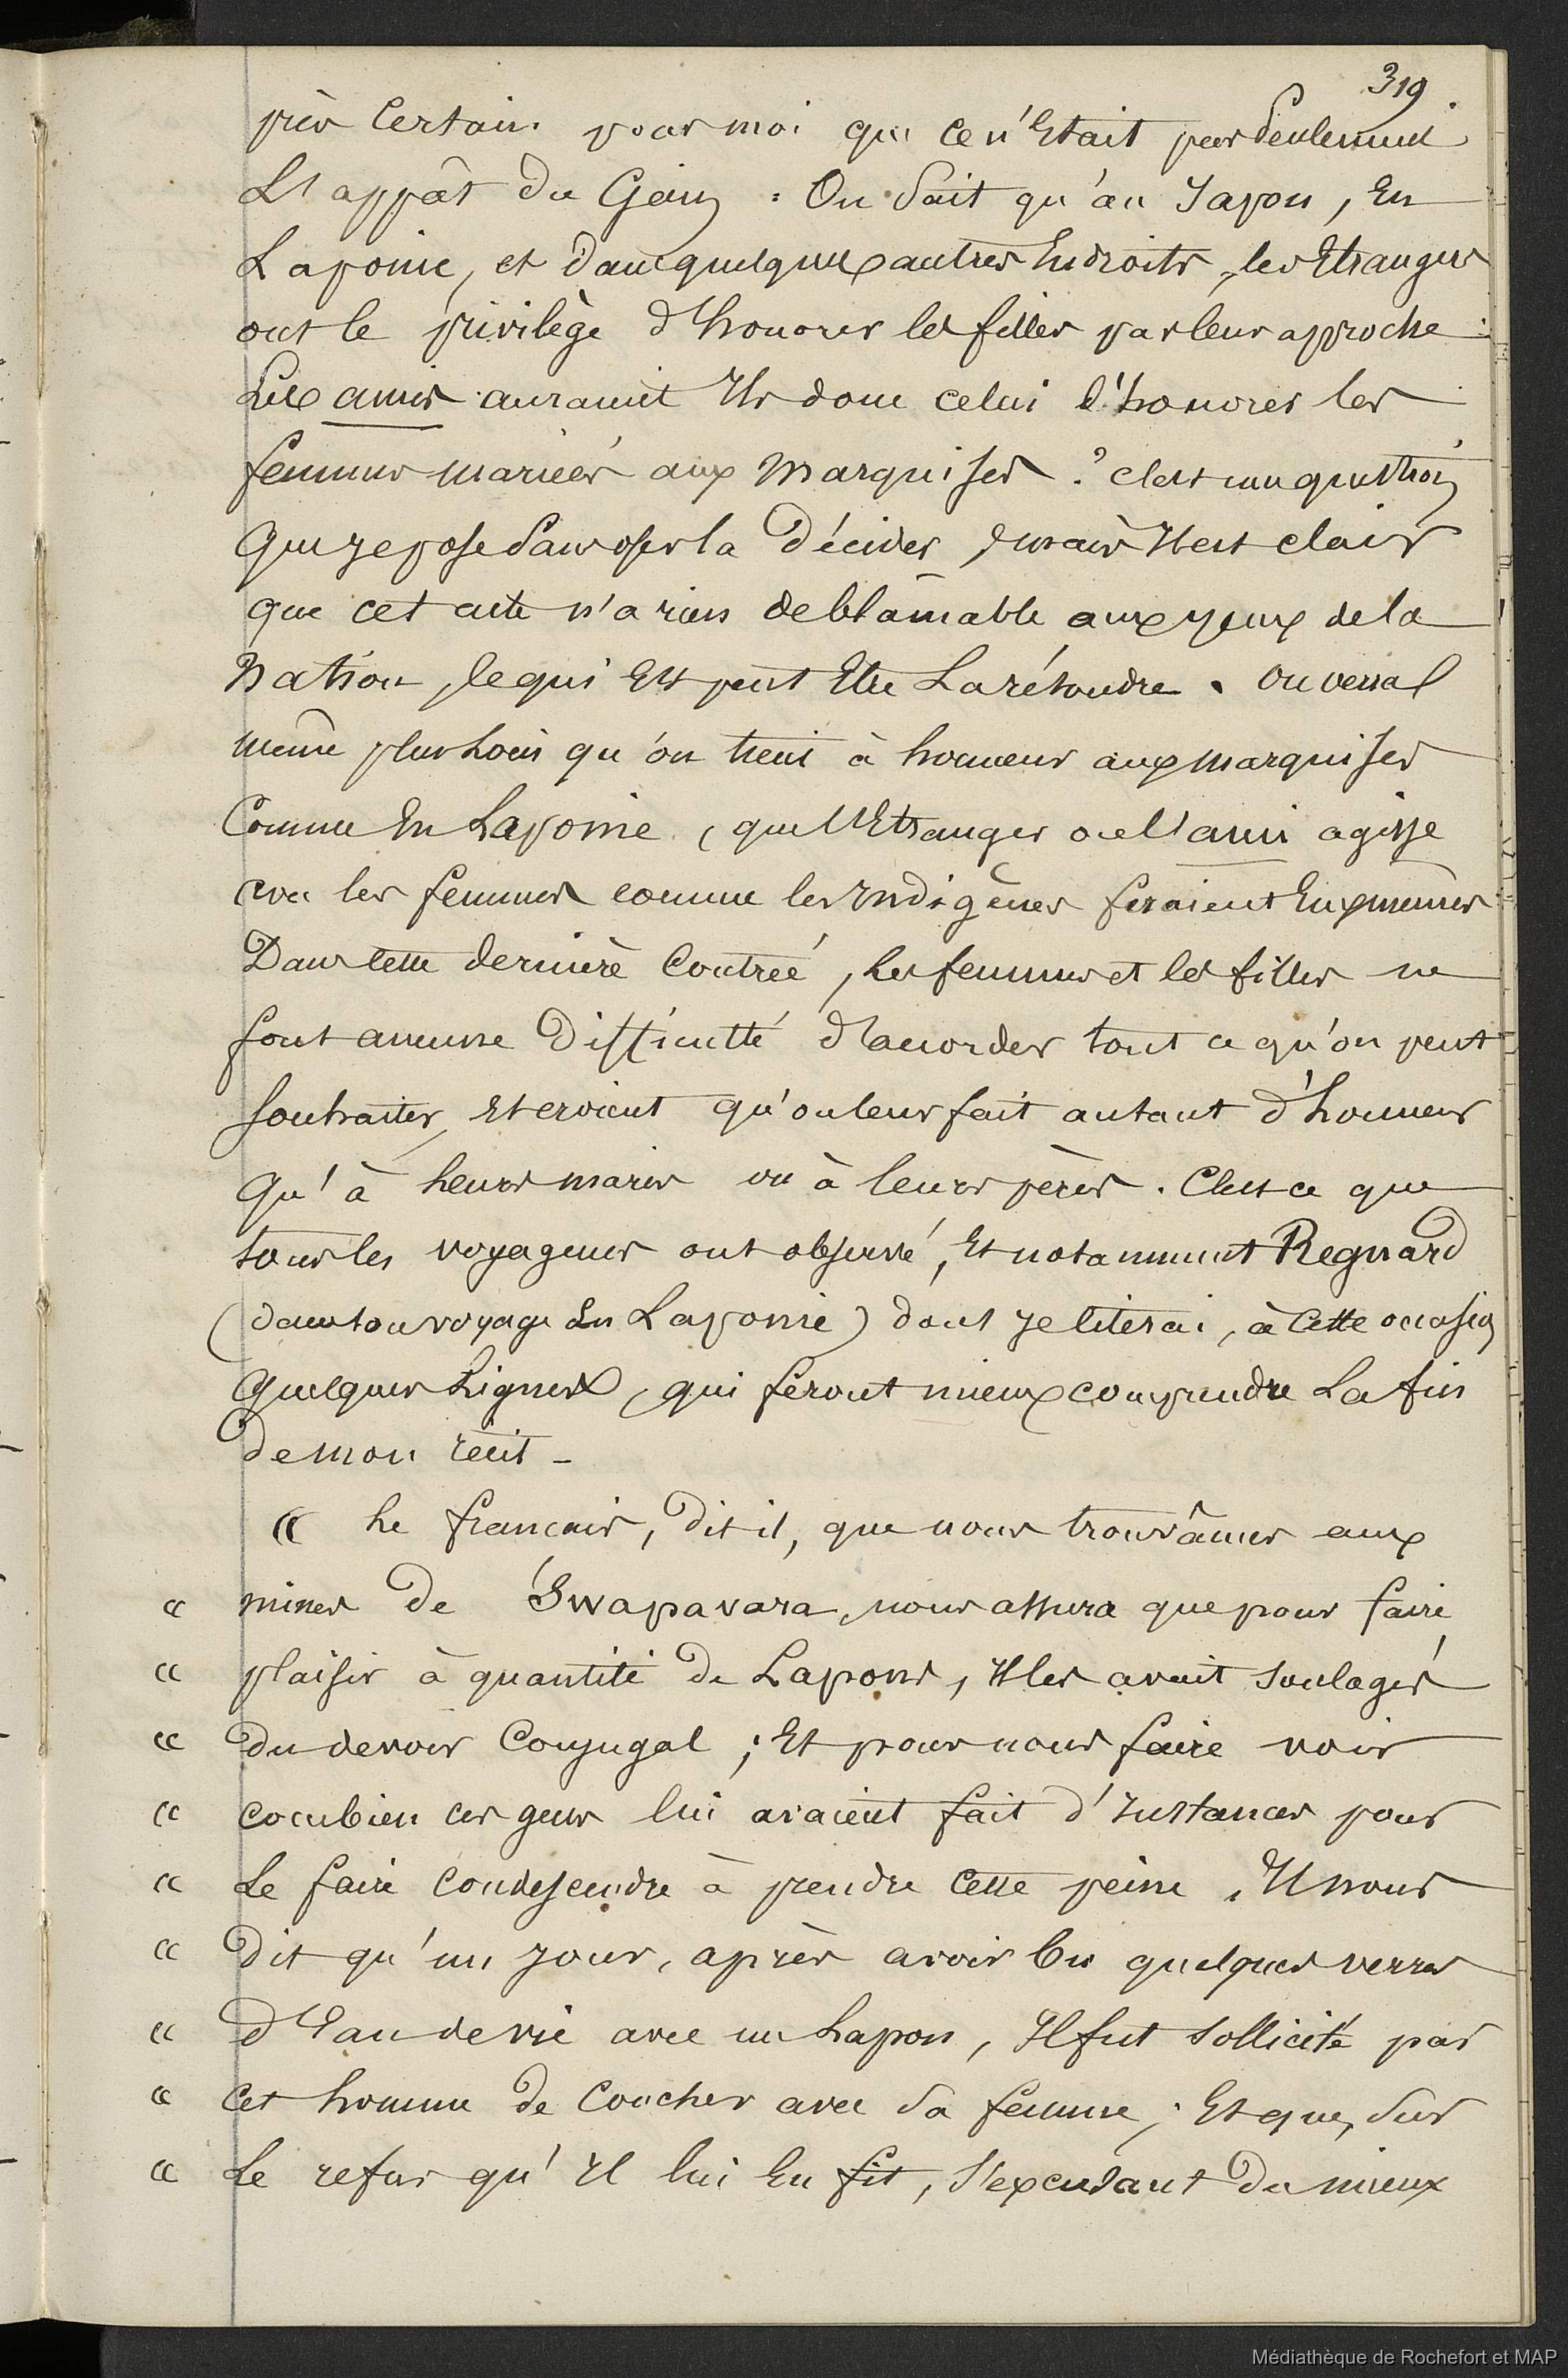 319
très certain pour moi que ce n'Etait pas seulement
L'appât du Gain : On sait qu'au Japon, En
Laponie, et dans quelques autres Endroits, les Etrangers
ont le privilège d'honorer les filles par leur approche.
Les amis auraient Ils donc celui d'honorer les
femmes mariées aux Marquises ? c'est une question
Que je pose sans oser la décider, mais Il est clair
que cet acte n'a rien de blâmable aux yeux de la
Nation, ce qui Est peut Etre La résoudre. On verra
même plus Loin qu'on tient à honneur aux marquises
Comme En Laponie, que l'Etranger ou l'ami agisse
avec les femmes comme les Indigènes feraient Eux mêmes
Dans cette dernière Contrée, Les femmes et les filles ne
font aucune Difficulté d'accorder tout ce qu'on peut
souhaiter, Et croient qu'on leur fait autant d'honneur
Qu'à Leurs maris ou à leurs pères. C'est ce que
tous les voyageurs ont observé, Et notamment Regnard
(dans son voyage En Laponie) dont je citerai, à Cette occasion
Quelques Lignes, qui feront mieux comprendre La fin
de mon récit -
« Le français, dit il, que nous trouvâmes aux
« mines de Swapavara, nous assura que pour faire
« plaisir à quantité de Lapons, Il les avait soulagés
« du devoir Conjugal ; Et pour nous faire voir
« cocubien ces gens lui avaient fait d'Instances pour
« Le faire Condescendre à prendre Cette peine, Il nous
« dit qu'un jour, après avoir bu quelques verres
« d'Eau de vie avec un Lapon, Il fut sollicité par
« Cet homme de Coucher avec sa femme ; Et que, sur
« Le refus qu'Il lui En fit, s'excusant du mieux
Médiathèque de Rochefort et MAP